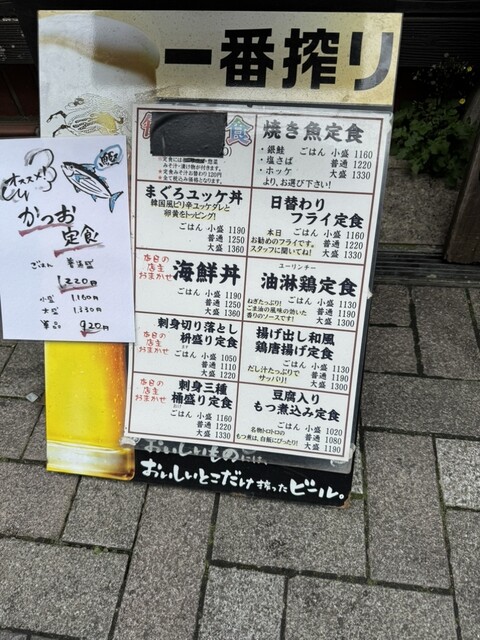 一番搾り
オススメ!
鰹
かつお
定食
ごはん 普通盛
1220円
小盛 1160円
大盛 1330円
単品 920円
食
※定食には
みそ汁・漬け物が付きます。
※定食みそ汁お替わり120円
※全て税込み価格となります。
まぐろユッケ丼
韓国風ピリ辛ユッケダレと
卵黄をトッピング!
ごはん 小盛 1190
普通 1250
大盛 1360
本日の
店主
おまかせ
海鮮丼
ごはん 小盛 1190
普通 1250
大盛 1360
本日の
店主
おまかせ
刺身切り落とし
枡盛り定食
ごはん 小盛 1050
普通 1110
大盛 1220
本日の
店主
おまかせ
刺身三種
桶盛り定食
ごはん 小盛 1160
普通 1220
大盛 1330
焼き魚定食
・銀鮭 ごはん 小盛 1160
・塩さば 普通 1220
・ホッケ 大盛 1330
より、お選び下さい!
日替わり
フライ定食
本日 ごはん 小盛 1160
お勧めのフライです。 普通 1220
スタッフに聞いてね! 大盛 1330
ユーリンチー
油淋鶏定食
ごはん 小盛 1130
ねぎたっぷり! 普通 1190
ごま油の風味の効いた 大盛 1300
香りのソースです!
揚げ出し和風
鶏唐揚げ定食
ごはん 小盛 1130
だし汁たっぷりで 普通 1190
サッパリ! 大盛 1300
豆腐入り
もつ煮込み定食
ごはん 小盛 1020
名物トロトロの 普通 1080
もつ煮は、白飯にぴったり! 大盛 1190
おいしいものには、
おいしいとこだけ搾ったビール。